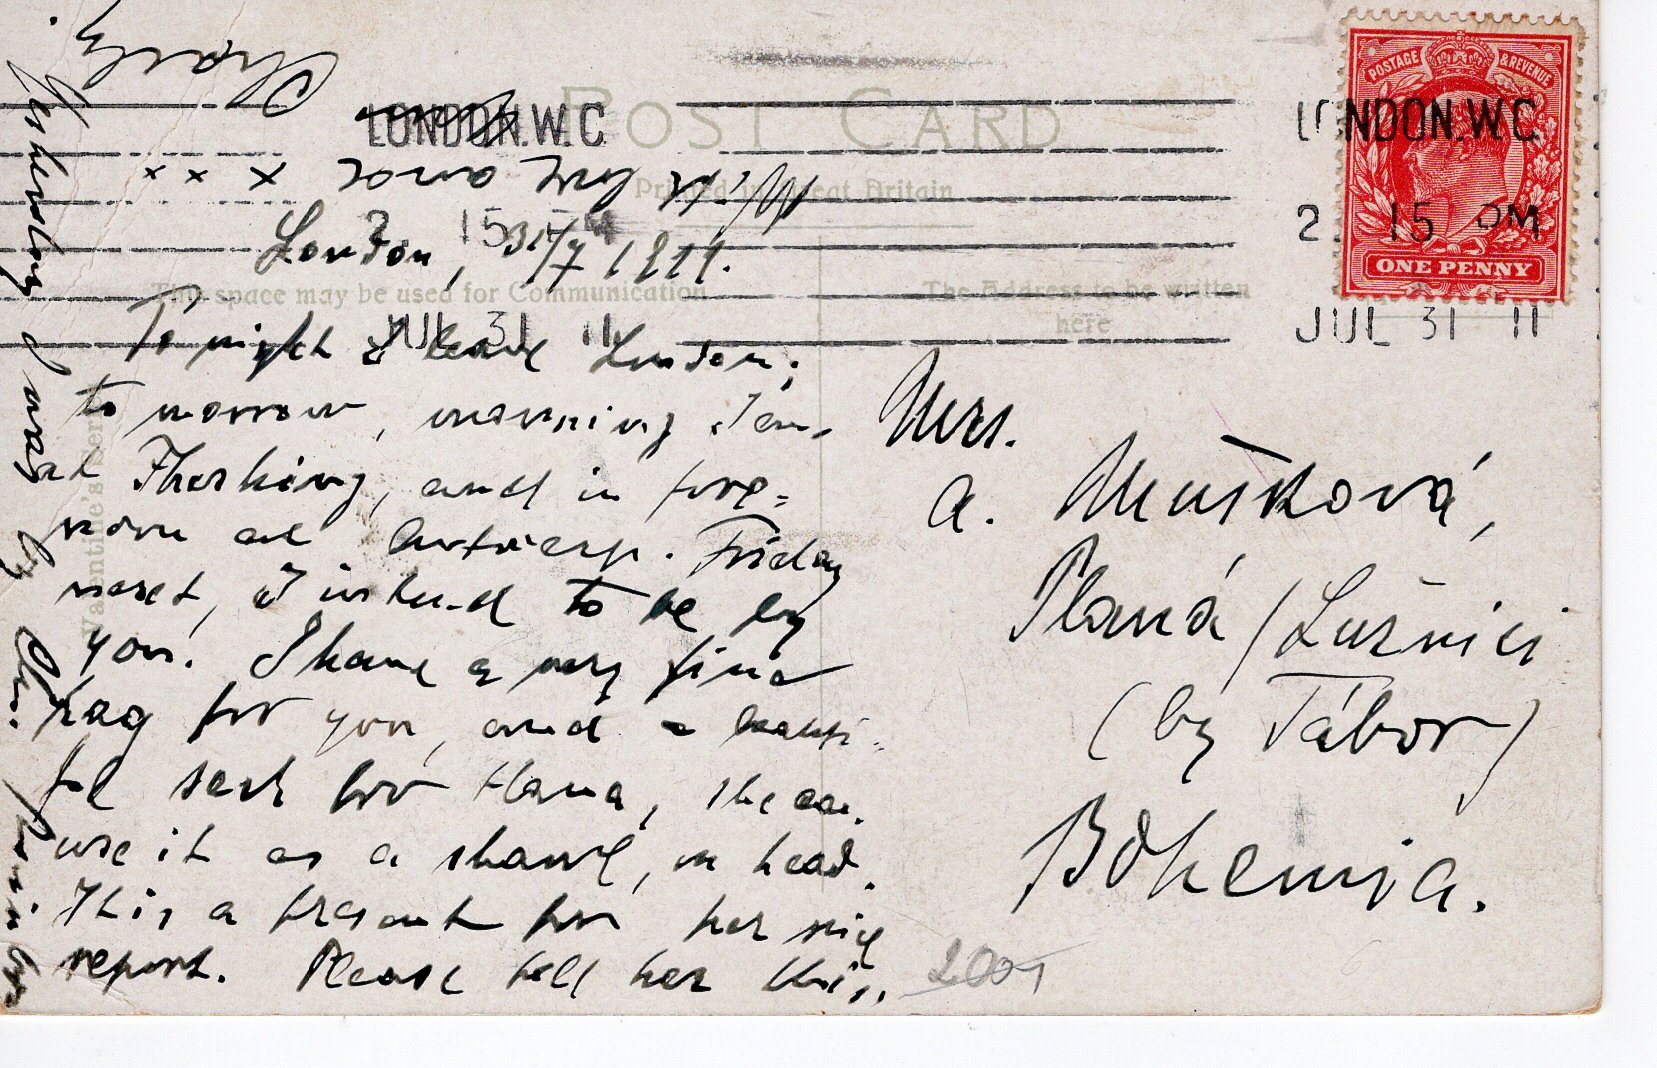 POST CARD
Printed in Great Britain
This space may be used for Communication
The Address to be written
here
Valentine's Series
POSTAGE & REVENUE
ONE PENNY
LONDON.W.C
2 15 PM
JUL 31 11
LONDON.W.C.
2. 15 PM
JUL 31 11
London, 31/7 1911.
To night I leave London;
to morrow, morning I am
at and in fore=
noon at Antwerp. Friday
next, I intend to be by
you. I have a very fine
bag for you, and a beauti=
ful sash for Hana, she can
use it as a shawl, on head.
This a present for her nice
report. Please tell her this.
Yesterday I was by
With love and
x x x
Charly.
Mrs.
A. Mušková,
Planá / Lužnici
(by Tábor)
Bohemia.
200